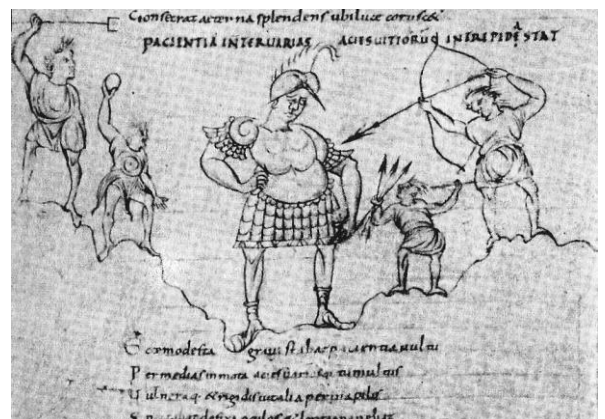 Consecrat aeterna splendens ubi luce corusc&
PACIENTIA INTERUARIAS ACIES UITIORŪ INTREPIDE STAT
Ecce modesta graui stabat pacientia uultu
Per medias inmota acies uariosq; tumultus
Uulneraq; & rigidis uitalia peruia pilis
Spectabat defixa oculos & lenta maneb&